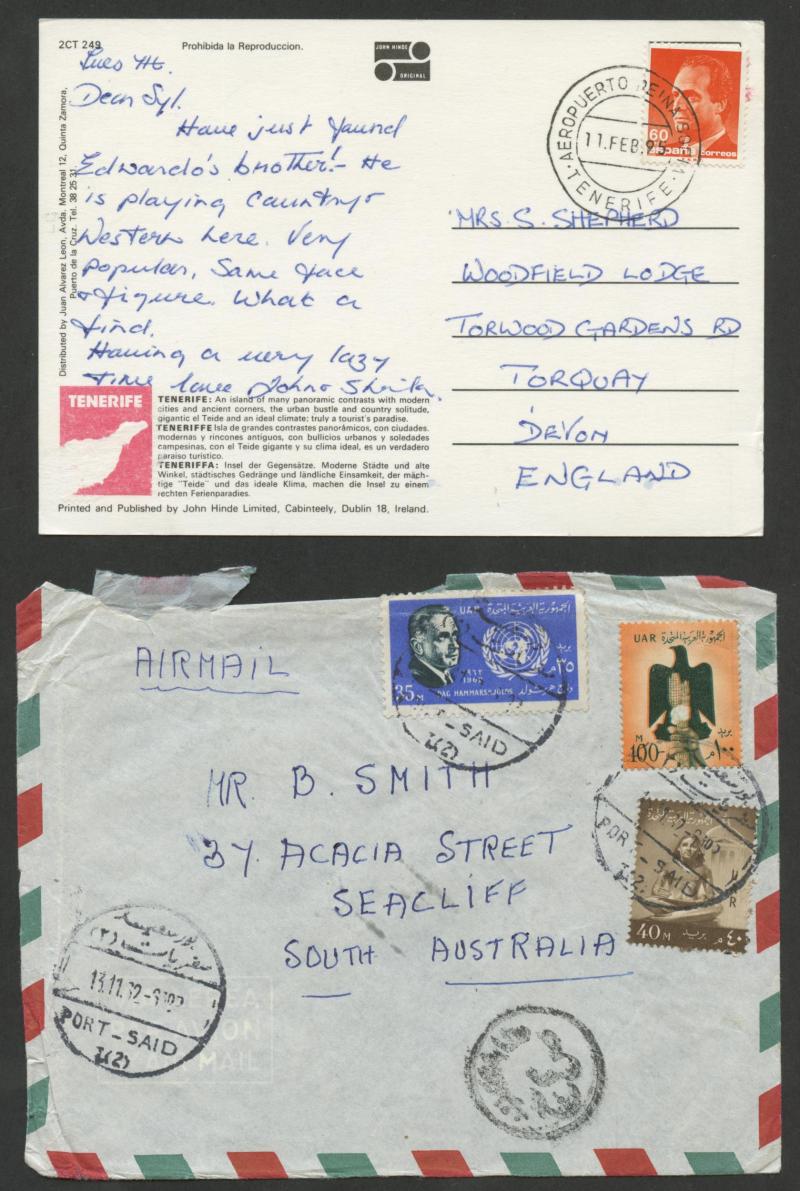 2CT 249
Prohibida la Reproduccion.
JOHN HINDE
ORIGINAL
Distributed by Juan Alvarez Leon, Avda. Montreal 12, Quinta Zamora,
Puerto de la Cruz. Tel. 38 25 31
Dear Syl.
Have just found
Edwardo's brother! - He
is playing Country &
Western here. Very
popular, Same face
& figure. What a
find.
Having a very lazy
time love John & Sheila.
60
España
correos
AEROPUERTO REINA SOFIA
11. FEB.
TENERIFE
MRS. S. SHEPHERD
WOODFIELD LODGE
TORWOOD GARDENS RD
TORQUAY
DEVON
ENGLAND
TENERIFE
TENERIFE: An island of many panoramic contrasts with modern
cities and ancient corners, the urban bustle and country solitude,
gigantic el Teide and an ideal climate; truly a tourist's paradise.
TENERIFFE Isla de grandes contrastes panorámicos, con ciudades.
modernas y rincones antiguos, con bullicios urbanos y soledades
campesinas, con el Teide gigante y su clima ideal, es un verdadero
paraiso turistico.
TENERIFFA: Insel der Gegensätze. Moderne Städte und alte
Winkel, städtisches Gedränge und ländliche Einsamkeit, der mäch-
tige "Teide" und das ideale Klima, machen die Insel zu einem
rechten Ferienparadies.
Printed and Published by John Hinde Limited, Cabinteely, Dublin 18, Ireland.
AIRMAIL
UAR الجمهورية العربية المتحدة
بريد
٣٥م
35M
1962
DAG HAMMARSKJOLD
داج همرشولد
SAID
T(2)
الجمهورية العربية المتحدة
UAR
بريد
M
100
١٠٠ م
PORT-SAID
الجمهورية العربية المتحدة
UAR
40M
بريد
٤٠ م
MR. B. SMITH
37 ACACIA STREET
SEACLIFF
SOUTH AUSTRALIA
بورسعيد
سفريات (٢)
13.11.62-
PORT-SAID
T(2)
PAR AVION
MAIL